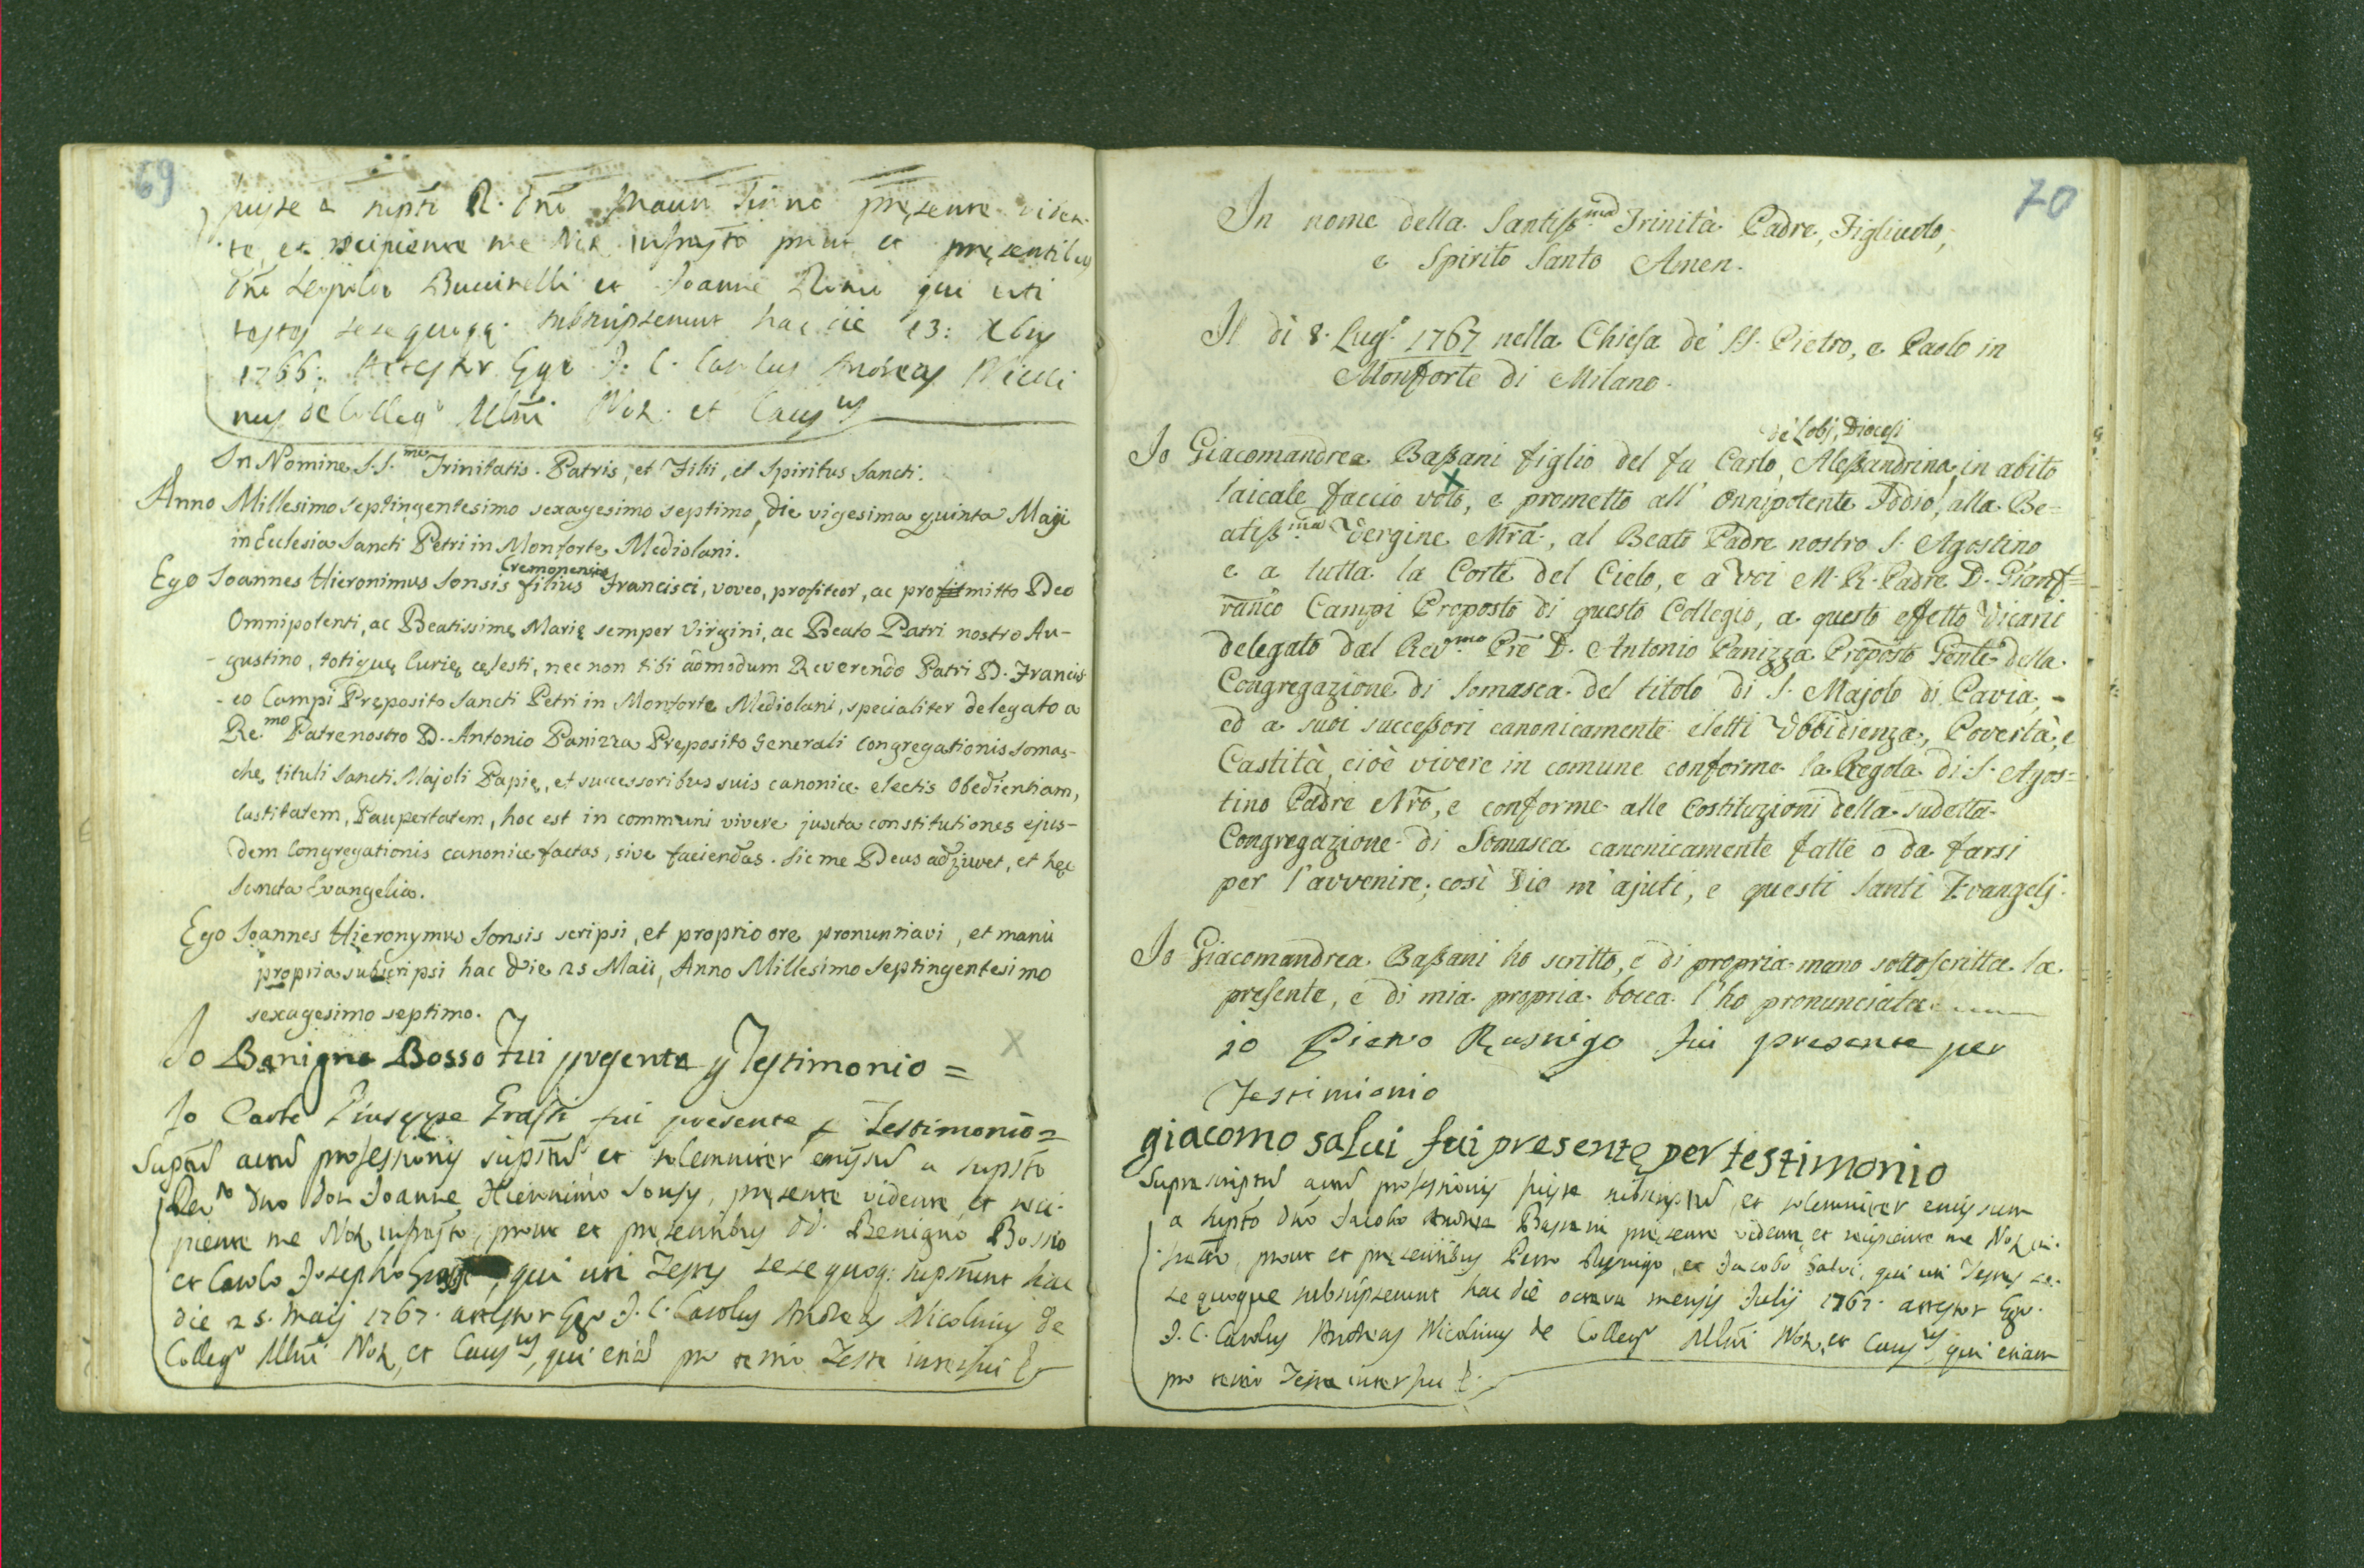 69
fuisse a supsto R. Dno Mauro presente viden-
te, et recipiente me Not. infrasto prout et presentibus
Dno Leopoldo Buccinelli et Joanne qui uti
testes sese quoqq. subscripserunt hac die 13: Xbris
1766: Attestor Ego J: C. Carolus Andreas Nicoli
nus de Collegº Mlni Not. et Caus.us
In Nomine S.S.me Trinitatis. Patris, et Filii, et Spiritus Sancti.
Anno Millesimo septingentesimo sexagesimo septimo, die vigesima quinta Maji
in Ecclesia Sancti Petri in Monforte Mediolani.
Cremonensis
Ego Joannes Hieronimus Sonsis filius Francisci, voveo, profiteor, ac promitto Deo
Omnipotenti, ac Beatissimę Marię semper Virgini, ac Beato Patri nostro Au-
-gustino, totiquę Curię cęlesti, nec non tibi admodum Reverendo Patri D. Francis
-co Campi Pręposito Sancti Petri in Monforte Mediolani, specialiter delegato a
Re.mo Patre nostro D. Antonio Panizza Pręposito Generali Congregationis Somas-
chę, tituli Sancti Majoli Papię, et successoribus suis canonice electis Obedientiam,
Castitatem, Paupertatem, hoc est in communi vivere juxta constitutiones ejus-
dem Congregationis canonice factas, sive faciendas. Sic me Deus adjuvet, et hęc
Sancta Evangelia.
Ego Joannes Hieronymus Sonsis scripsi, et proprio ore pronuntiavi, et manu
propria subscripsi hac die 25 Maii, Anno Millesimo Septingentesimo
sexagesimo septimo.
Io Benigno Bosso fui presente p Testimonio =
Io Carlo Giuseppe Grassi fui presente p Testimonio =
Supstus actus professionis supstus et solemniter emissus a supsto
Revdo Dno Don Joanne Hieronimo Sonsis, presente vidente, et reci-
piente me Not. infrasto, prout et presentibus DD. Benigno Bosso
et Carolo Josepho Grassi, qui uti Testes sese quoq: supsterunt hac
die 25. Maij 1767. attestor Ego J. C. Carolus Andreas Nicolinus de
Collegº Mlni Not. et Caus.us, qui etiam pro tertio Teste interfui
70
In nome della Santiss.ma Trinità Padre, Figliuolo,
e Spirito Santo Amen.
Il dì 8. Lugº 1767 nella Chiesa de' SS. Pietro, e Paolo in
Monforte di Milano.
de' Lobj, Diocesi
Io Giacomandrea Bassani figlio del fu Carlo, Alessandrina, in abito
laicale faccio voto, e prometto all' Onnipotente Iddio, alla Be=
atiss.ma Vergine Mra, al Beato Padre nostro S. Agostino
e a tutta la Corte del Cielo, e a voi M. R. Padre D. Gianf=
ranco Campi Proposto di questo Collegio, a questo effetto Vicarii
delegato dal Rev.mo Pre D. Antonio Panizza Proposto Gente della
Congregazione di Somasca del titolo di S. Majolo di Pavia, -
ed a suoi successori canonicamente eletti Ubbidienza, Povertà, e
Castità, cioè vivere in comune conforme la Regola di S. Agos=
tino Padre Nro, e conforme alle Costituzioni della sudetta
Congregazione di Somasca canonicamente fatte o da farsi
per l'avvenire; così Dio m'ajuti, e questi Santi Evangelj.
Io Giacomandrea Bassani ho scritto, e di propria mano sottoscritta la
presente, e di mia propria bocca l'ho pronunciata
io Pietro Rusnigo fui presente per
Testimionio
giacomo salui fui presente per testimonio
Suprascriptus actus professionis fuit subscriptus, et solemniter emissum
a supsto Dno Jacobo Andrea Bassani presente vidente et recipiente me Not. in-
frasto, prout et presentibus Petro Rusnigo, et Jacobo Salvi, qui uti Testes se-
se quoque subscripserunt hac die octava mensis Julij 1767. attestor Ego
J. C. Carolus Andreas Nicolinus de Collegº Mlni Not. et Caus.us, qui etiam
pro tertio Teste interfui